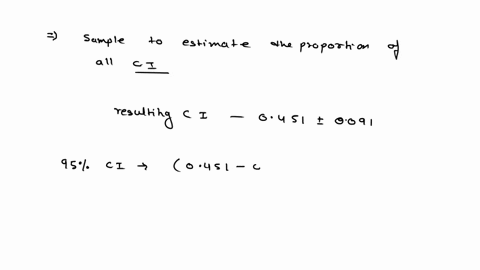 =) Sample to estimate the proportion of
all CI
resulting CI — 0.451 ± 0.091
95% CI → (0.451 - 0